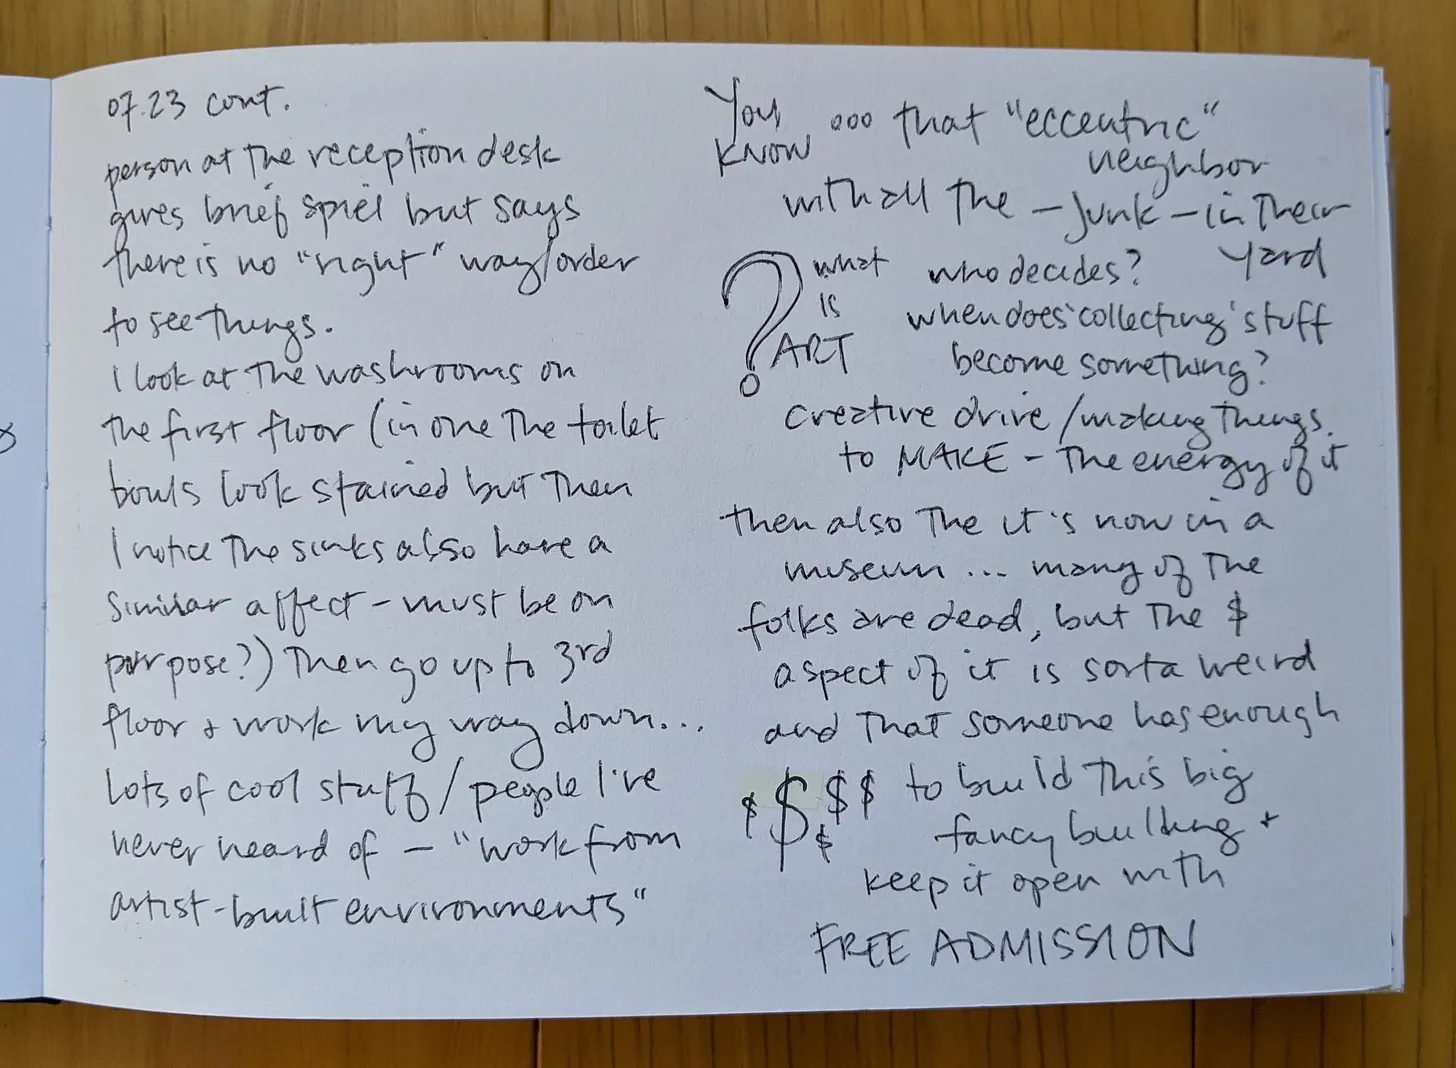 07.23 cont.
person at the reception desk
gives brief spiel but says
there is no "right" way/order
to see things.
I look at the washrooms on
the first floor (in one the toilet
bowls look stained but then
I notice the sinks also have a
similar affect - must be on
purpose?) Then go up to 3rd
floor + work my way down...
lots of cool stuff/people I've
never heard of - "work from
artist-built environments"
You
know ... that "eccentric"
neighbor
with all the - junk - in their
yard
? what
is
ART
who decides?
when does 'collecting' stuff
become something?
creative drive/making things.
to MAKE - the energy of it
then also the it's now in a
museum ... many of the
folks are dead, but the $
aspect of it is sorta weird
and that someone has enough
$ $ $ $ $ to build this big
fancy building +
keep it open with
FREE ADMISSION